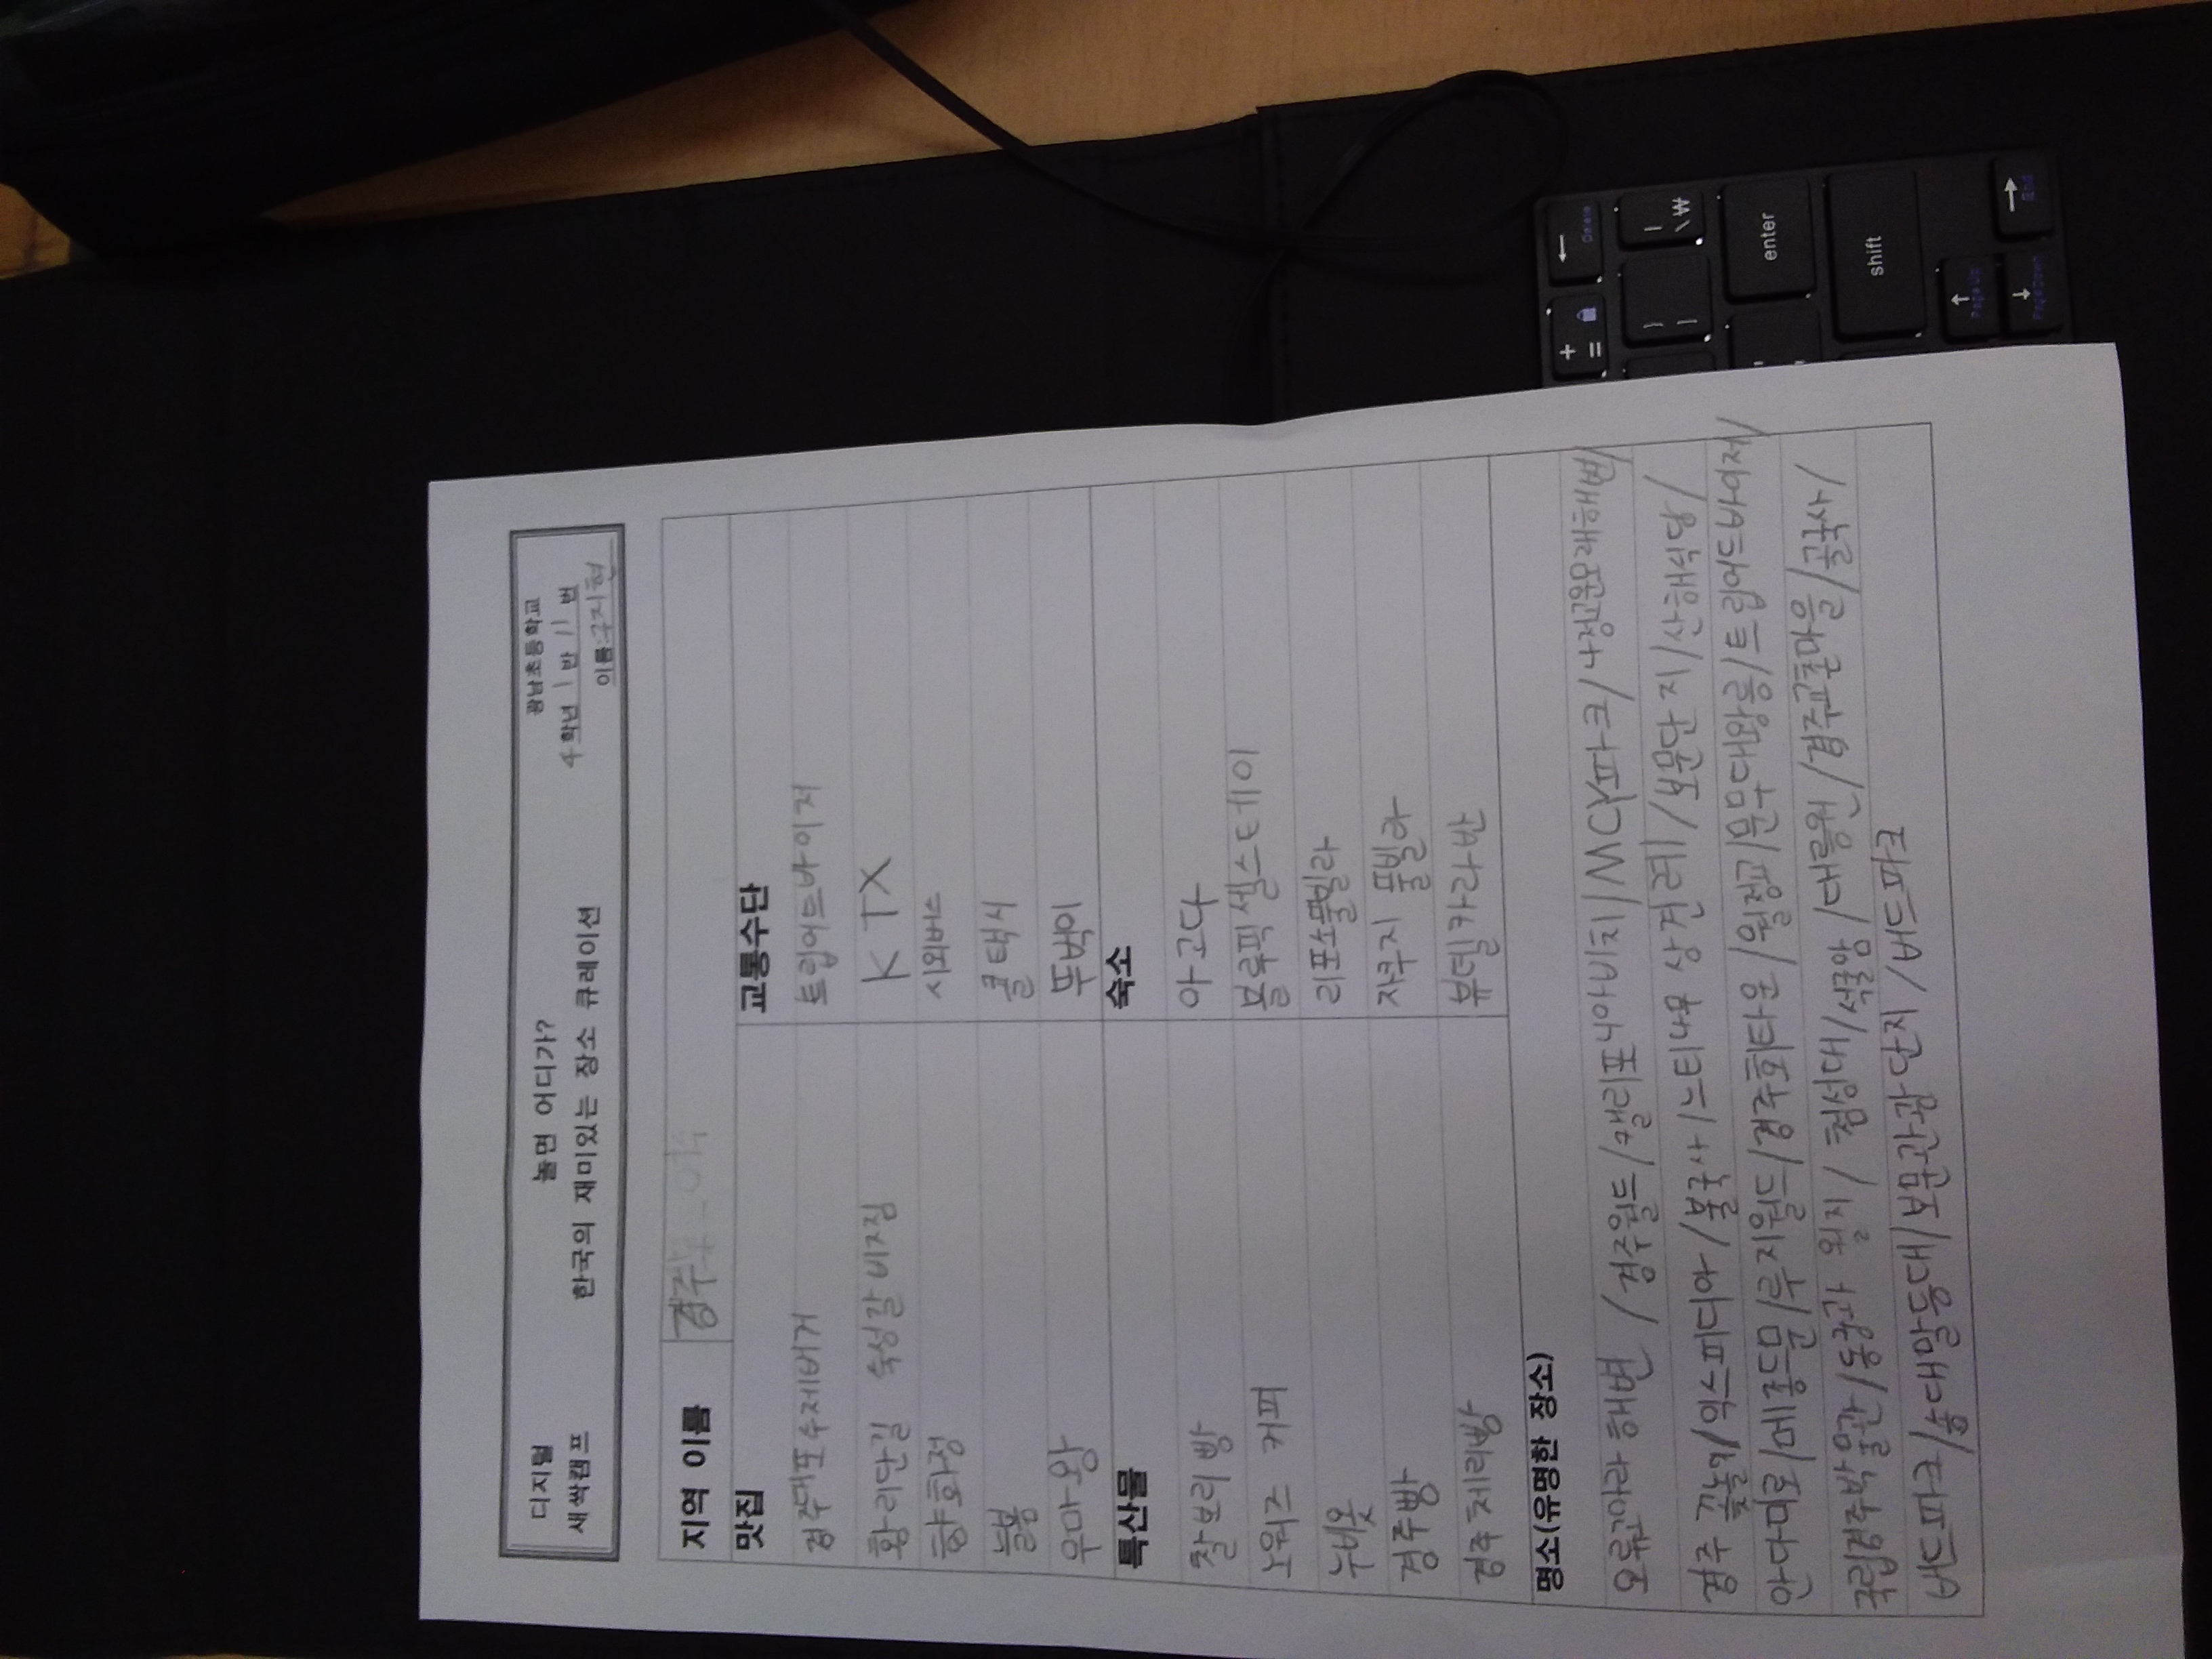 디지털
새싹캠프
놀면 어디가?
한국의 재미있는 장소 큐레이션
광남초등학교
4학년 1 반 11 번
이름:구지현
지역 이름
경주
맛집
교통수단
경주대포수제버거
트립어드바이저
황리단길 숙성갈비지집
KTX
향화정
시외버스
놀놈
콜택시
우마왕
뚜벅이
특산물
숙소
찰보리빵
아고다
노워즈 커피
블루픽셀스테이
누비웃
리포소풀빌라
경주빵
자쿠지 풀빌라
경주체리빵
뷰델카라반
명소(유명한 장소)
오류고아라 해변 / 경주월드/캘리포니아비치/MCY파크/나정고운모래해변/
경주 기놀일/엑스피디아/불국사/느티나무 상거리/보문단지/산해식당/
안다미로/메롱드림/루지월드/경주화타운/월정교/문무대왕릉/트립어드바이저/
국립경주박물관/황리단길/첨성대/석굴암/대릉원/경주교촌마을/골굴사/
버드파크/수대말등대/보문관광단지/버드파크
Delete
+
=
|
\ ₩
enter
shift
Page Up
PageDown
End